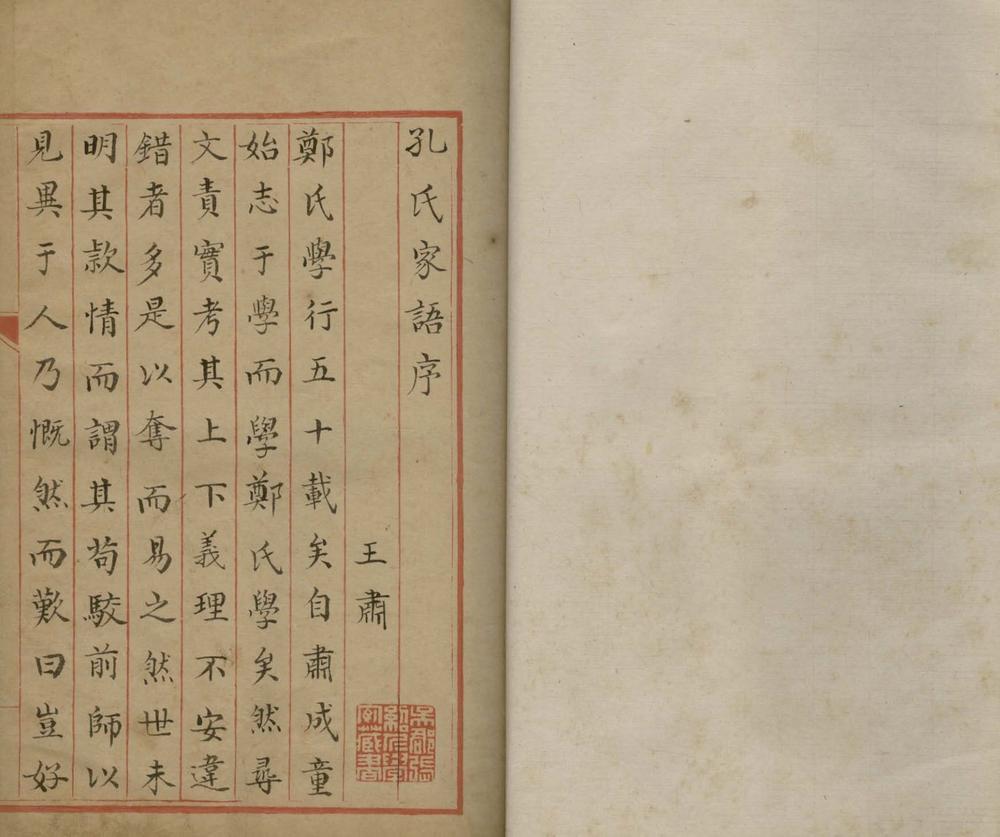 孔氏家語序
王肅
鄭氏學行五十載矣自肅成童
始志于學而學鄭氏學矣然尋
文責實考其上下義理不安違
錯者多是以奪而易之然世未
明其款情而謂其苟駮前師以
見異于人乃慨然而歎曰豈好